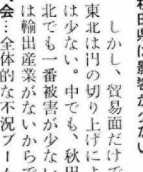 秋田県は影響が少ない
しかし、貿易面だけで
東北は円の切り上げによ
は少ない。中でも、秋田
北でも一番被害が少ない
は輸出産業がないからで
会…全体的な不況ブーム